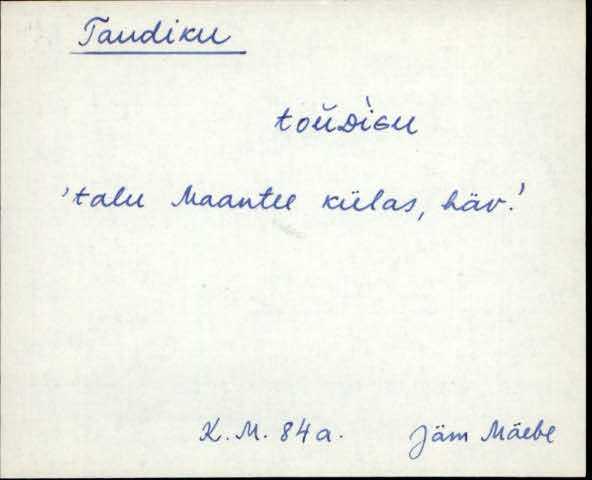 Taudiku
toŭDìGu
'talu Maantee külas, häv.'
K.M. 84a. Jäm Mäebe